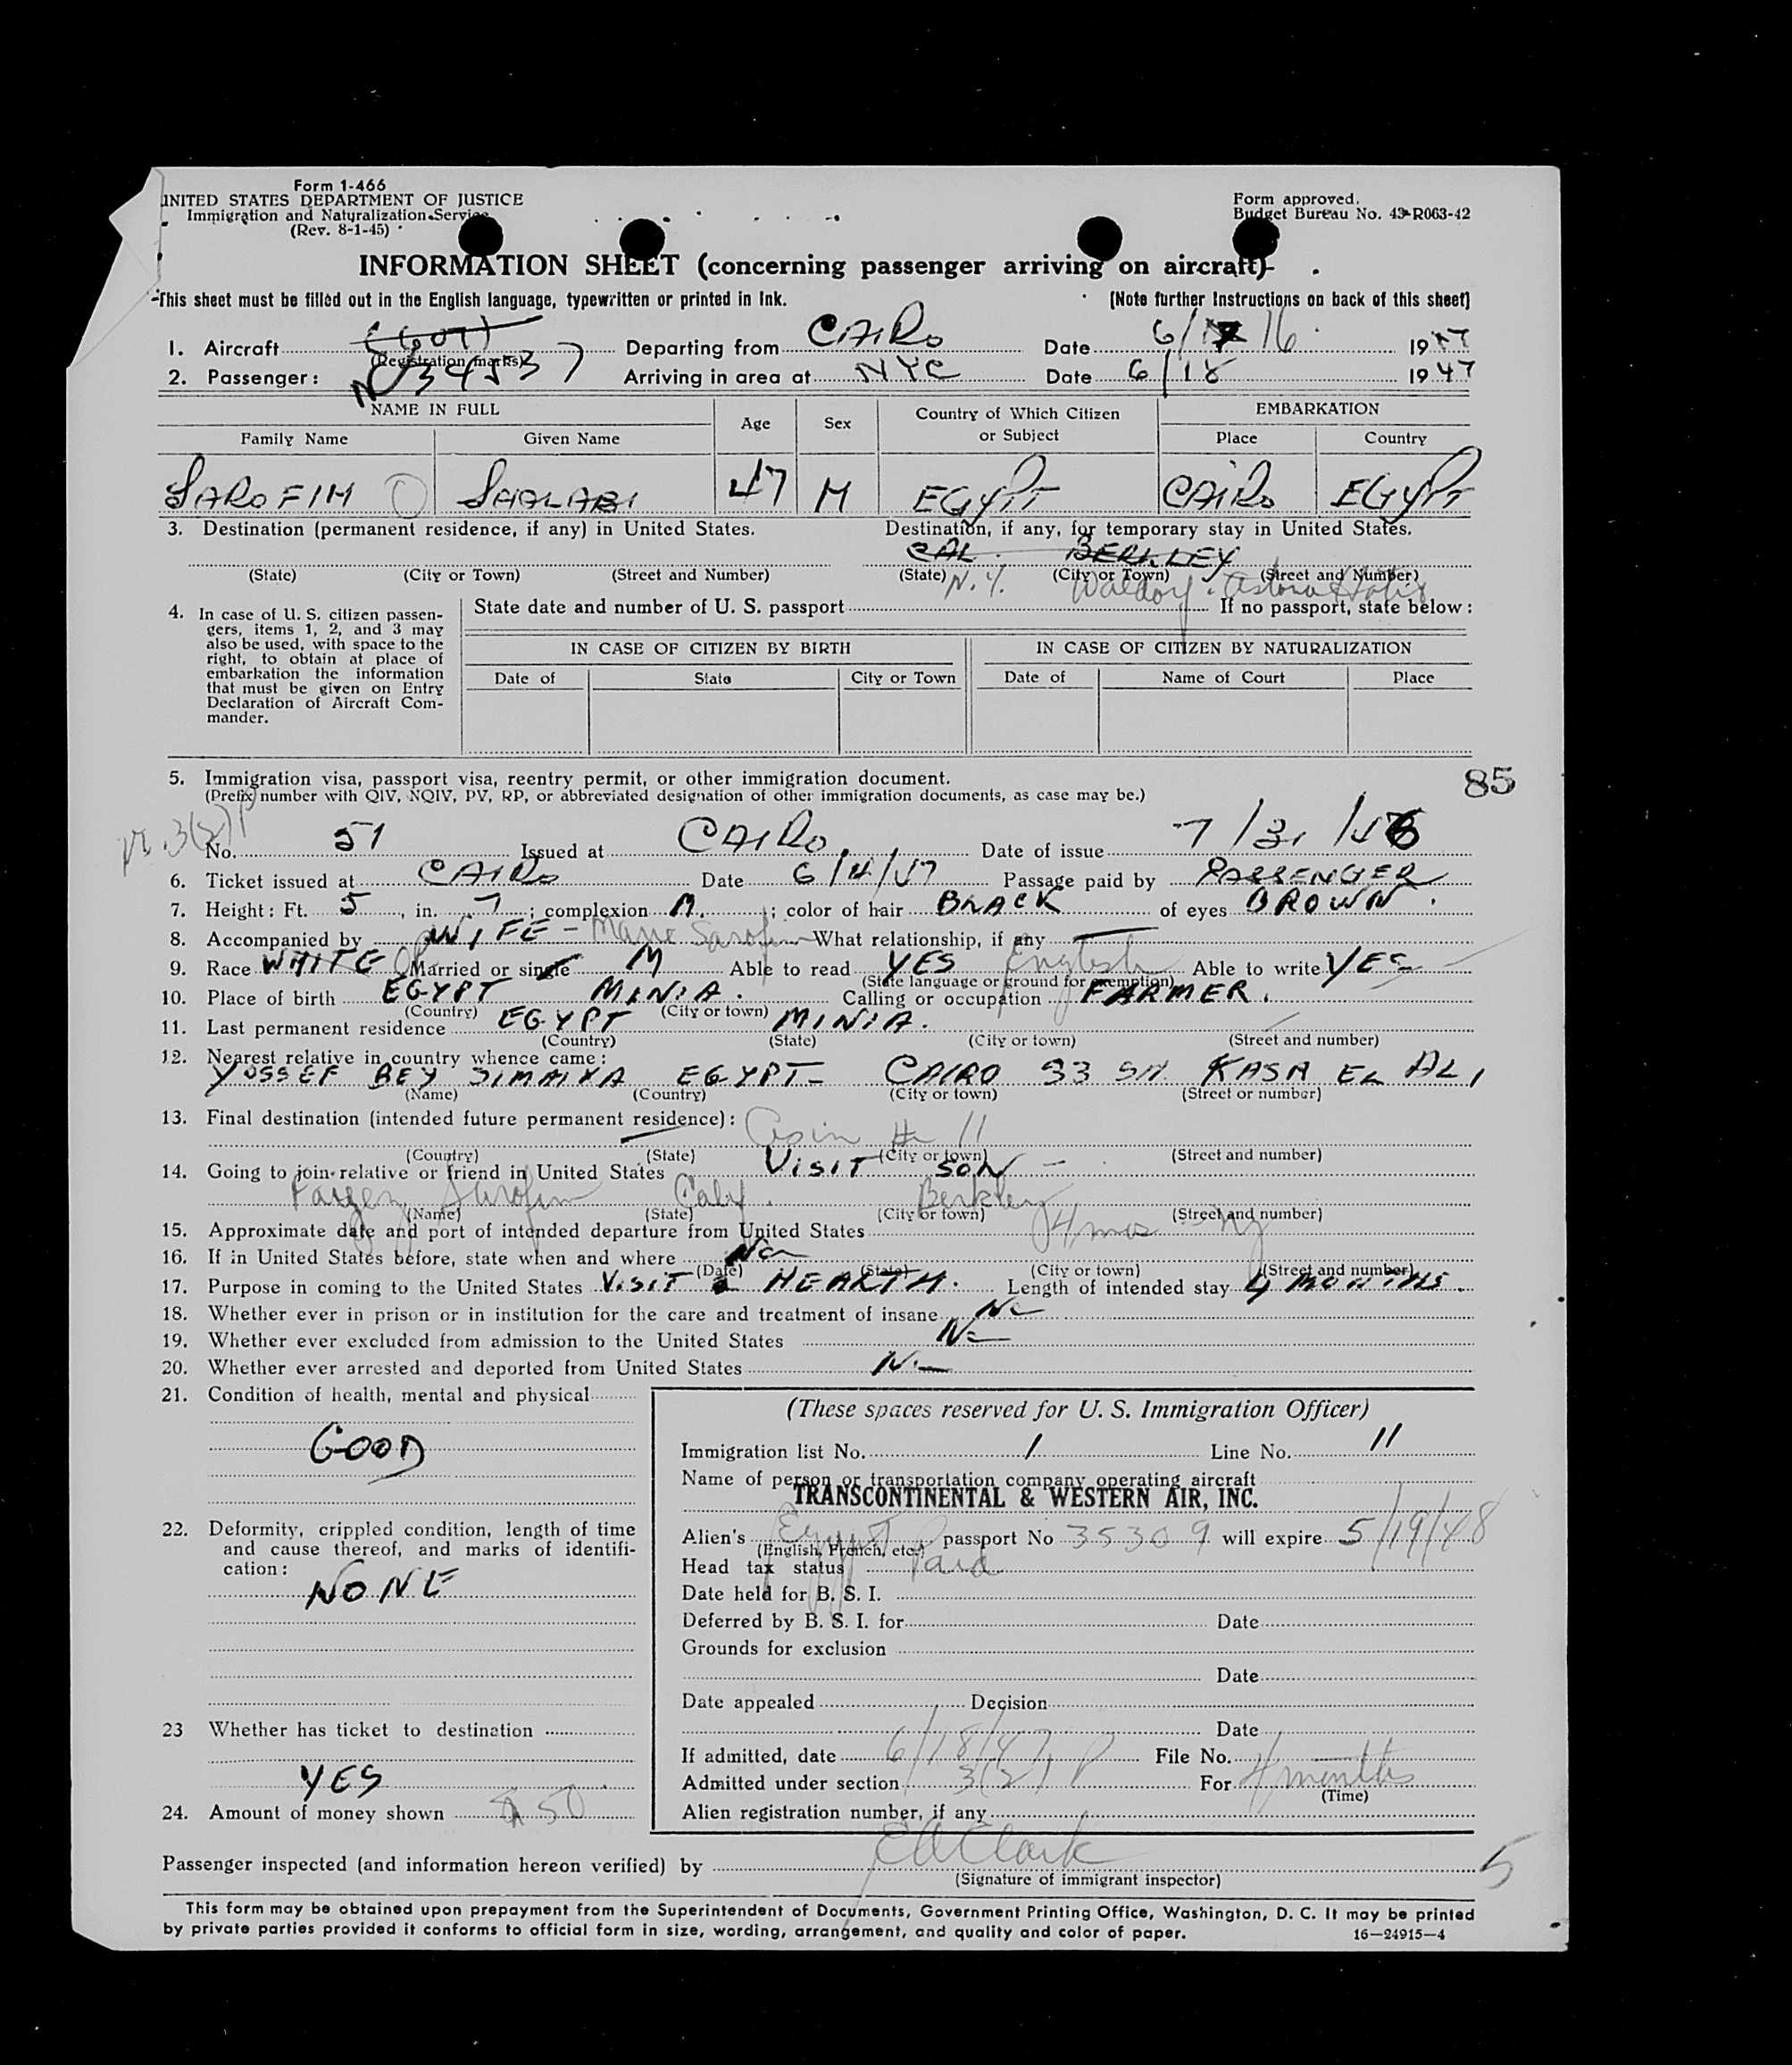 Form 1-466
UNITED STATES DEPARTMENT OF JUSTICE
Immigration and Naturalization Service
(Rev. 8-1-45)
Form approved.
Budget Bureau No. 43-R063-42
INFORMATION SHEET (concerning passenger arriving on aircraft)
This sheet must be filled out in the English language, typewritten or printed in ink.
(Note further instructions on back of this sheet)
1. Aircraft (Registration marks) Departing from CAIRO Date 6/16 1947
2. Passenger: Arriving in area at NYC Date 6/18 1947
NAME IN FULL Age Sex Country of Which Citizen or Subject EMBARKATION
Family Name Given Name Place Country
SAROFIM SHALABI 47 M EGYPT CAIRO EGYPT
3. Destination (permanent residence, if any) in United States. Destination, if any, for temporary stay in United States.
CAL. BERKLEY
(State) (City or Town) (Street and Number) (State) (City or Town) (Street and Number)
N.Y. Waldorf Astoria Hotel
4. In case of U. S. citizen passengers, items 1, 2, and 3 may also be used, with space to the right, to obtain at place of embarkation the information that must be given on Entry Declaration of Aircraft Commander.
State date and number of U. S. passport If no passport, state below:
IN CASE OF CITIZEN BY BIRTH IN CASE OF CITIZEN BY NATURALIZATION
Date of State City or Town Date of Name of Court Place
85
5. Immigration visa, passport visa, reentry permit, or other immigration document.
(Prefix number with QIV, NQIV, PV, RP, or abbreviated designation of other immigration documents, as case may be.)
3(2)
No. 51 Issued at CAIRO Date of issue
6. Ticket issued at CAIRO Date 6/4/47 Passage paid by PASSENGER
7. Height: Ft. 5, in. 7; complexion M.; color of hair BLACK of eyes BROWN.
8. Accompanied by WIFE - Marie Sarofim What relationship, if any
9. Race WHITE Married or single M Able to read YES English Able to write YES
(State language or ground for exemption)
10. Place of birth EGYPT MINIA. Calling or occupation FARMER.
(Country) (City or town)
11. Last permanent residence EGYPT MINIA.
(Country) (State) (City or town) (Street and number)
12. Nearest relative in country whence came:
YOSSEF BEY EGYPT - CAIRO 33 KASR EL
(Name) (Country) (City or town) (Street or number)
13. Final destination (intended future permanent residence):
(Country) (State) (City or town) (Street and number)
14. Going to join relative or friend in United States VISIT SON -
Sarofim Calif. Berkley
(Name) (State) (City or town) (Street and number)
15. Approximate date and port of intended departure from United States 4 mos NY
16. If in United States before, state when and where No
(Date) (State) (City or town) (Street and number)
17. Purpose in coming to the United States VISIT & HEALTH. Length of intended stay 4 MONTHS.
18. Whether ever in prison or in institution for the care and treatment of insane No
19. Whether ever excluded from admission to the United States No
20. Whether ever arrested and deported from United States No
21. Condition of health, mental and physical
GOOD
22. Deformity, crippled condition, length of time and cause thereof, and marks of identification:
NONE
23 Whether has ticket to destination
YES
24. Amount of money shown $50
(These spaces reserved for U. S. Immigration Officer)
Immigration list No. 1 Line No. 11
Name of person or transportation company operating aircraft
TRANSCONTINENTAL & WESTERN AIR, INC.
Alien's Egypt passport No 35309 will expire 5/19/48
(English, French, etc.)
Head tax status Paid
Date held for B. S. I.
Deferred by B. S. I. for Date
Grounds for exclusion
Date
Date appealed Decision
Date
If admitted, date 6/18/47 File No.
Admitted under section 3(2) For 4 months
(Time)
Alien registration number, if any
Passenger inspected (and information hereon verified) by EA Clark
(Signature of immigrant inspector)
5
This form may be obtained upon prepayment from the Superintendent of Documents, Government Printing Office, Washington, D. C. It may be printed
by private parties provided it conforms to official form in size, wording, arrangement, and quality and color of paper.
16—24915-4